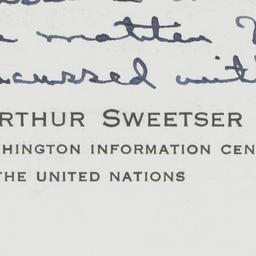 e matter
cussed with
RTHUR SWEETSER
HINGTON INFORMATION CEN
THE UNITED NATIONS